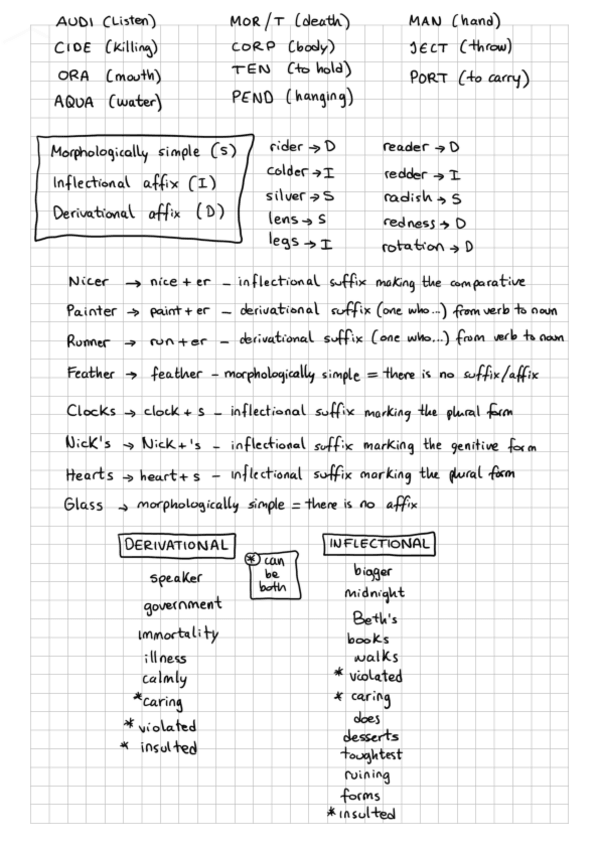 AUDI (Listen) MOR/T (death) MAN (hand)
CIDE (killing) CORP (body) JECT (throw)
ORA (mouth) TEN (to hold) PORT (to carry)
AQUA (water) PEND (hanging)
Morphologically simple (S)
Inflectional affix (I)
Derivational affix (D)
rider → D reader → D
colder → I redder → I
silver → S radish → S
lens → S redness → D
legs → I rotation → D
Nicer → nice + er - inflectional suffix making the comparative
Painter → paint + er - derivational suffix (one who...) from verb to noun
Runner → run + er - derivational suffix (one who...) from verb to noun
Feather → feather - morphologically simple = there is no suffix/affix
Clocks → clock + s - inflectional suffix marking the plural form
Nick's → Nick + 's - inflectional suffix marking the genitive form
Hearts → heart + s - inflectional suffix marking the plural form
Glass → morphologically simple = there is no affix
DERIVATIONAL
speaker
government
immortality
illness
calmly
*caring
* violated
* insulted
* can
be
both
INFLECTIONAL
bigger
midnight
Beth's
books
walks
* violated
* caring
does
desserts
toughtest
ruining
forms
* insulted